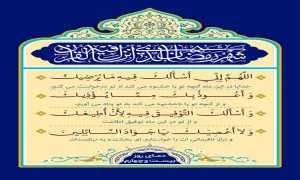 شهر رمضان الذی انزل فیه القرآن
اللهم إنی أسألك فیه ما یرضیك
خدایا در این ماه آنچه تو را خشنود می کند از تو درخواست می کنم
و أعوذ بك مما یؤذیك
و از آنچه تو را ناخشنود می کند به تو پناه می آورم
و أسألك التوفیق فیه لأن أطیعك
و از تو در این ماه توفیق اطاعت
و لا أعصیك یا جواد السائلین
و ترک نافرمانی ات را خواستارم، ای بخشنده به نیازمندان
دعای روز
بیست و چهارم